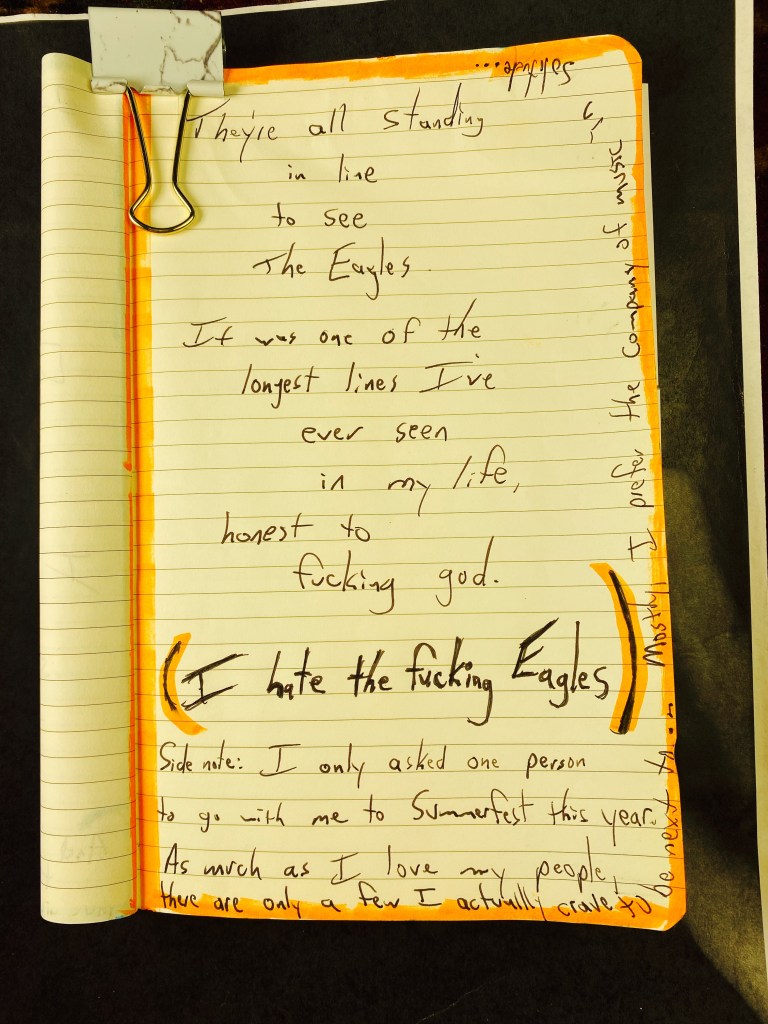 They're all standing
in line
to see
The Eagles.
It was one of the
longest lines I've
ever seen
in my life,
honest to
fucking god.
(I hate the fucking Eagles)
Side note: I only asked one person
to go with me to Summerfest this year.
As much as I love my people,
there are only a few I actually crave to
be next to... Mostly, I prefer the company of music
solitude...